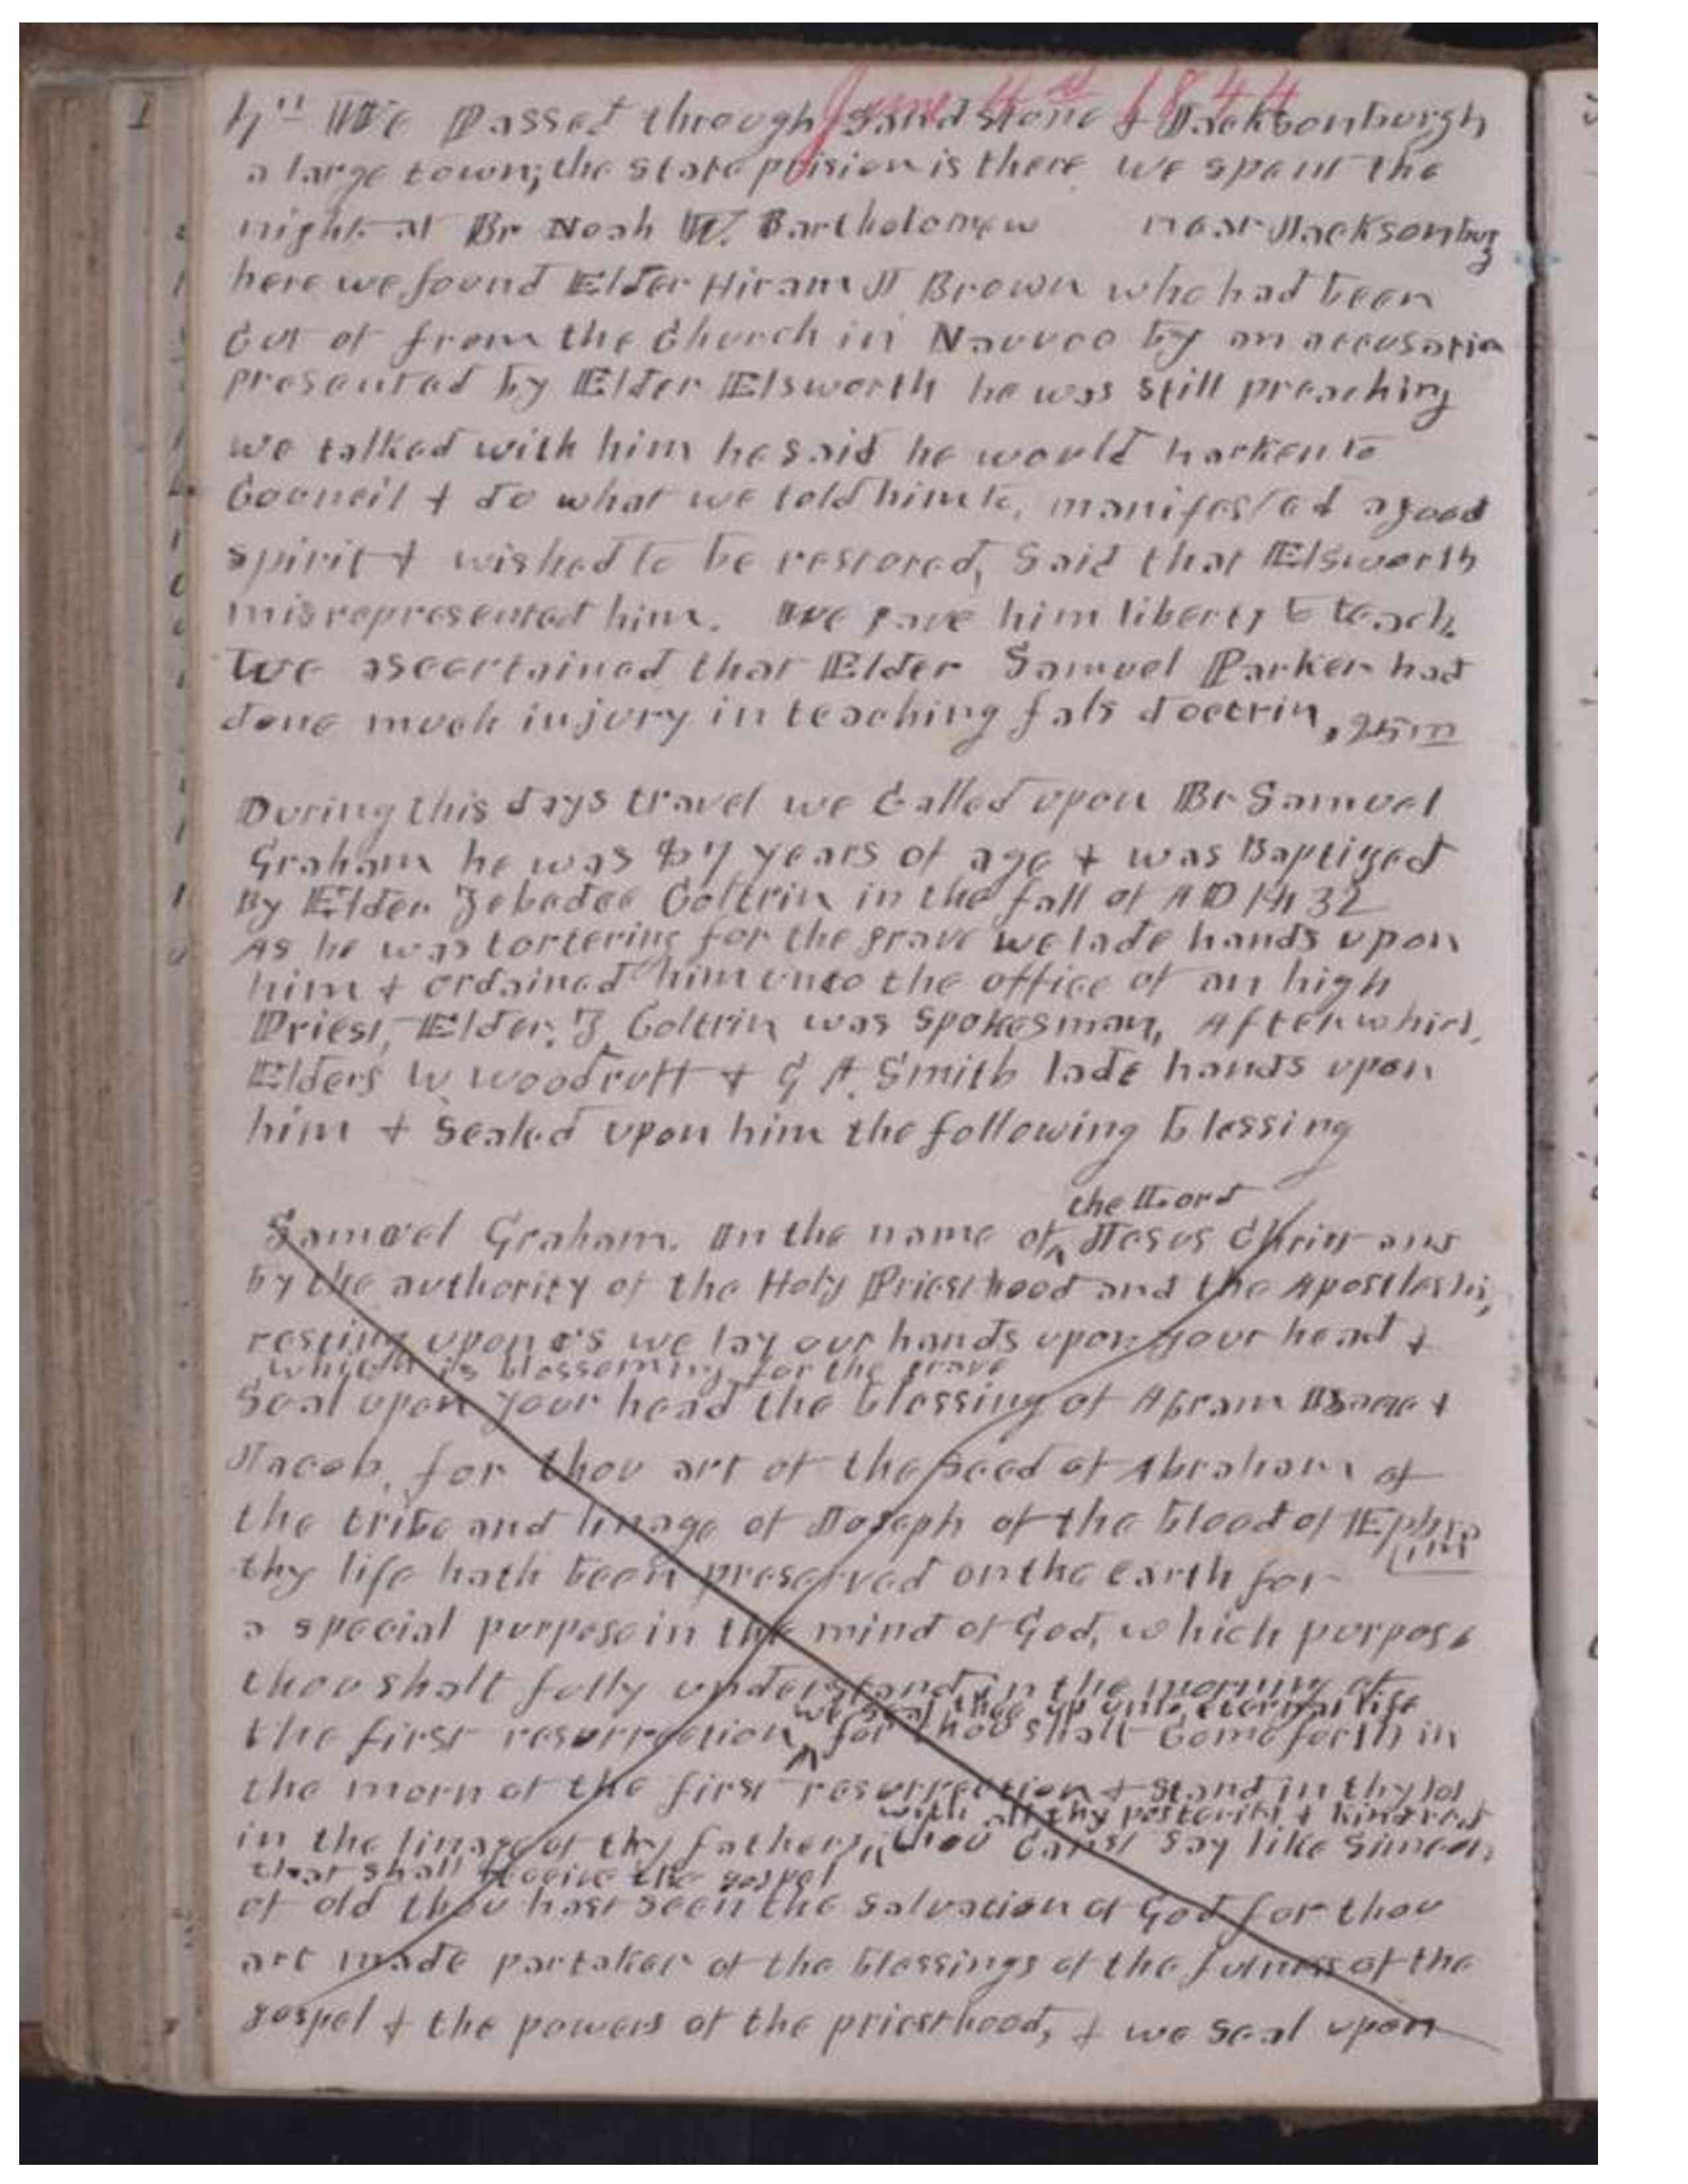 June 4th 1844
4th We Passed through Sandstone & Jacksonburgh
a large town; the state prision is there we spent the
night at Br Noah W. Bartholomew near Jacksonburg
here we found Elder Hiram J Brown who had been
Cut of from the Church in Nauvoo by an accusation
presented by Elder Elsworth he was still preaching
we talked with him he said he would harken to
Councill & do what we told him to, manifested a good
spirit & wished to be restored, Said that Elsworth
misrepresented him. We gave him liberty to teach
We ascertained that Elder Samuel Parker had
done much injury in teaching fals doctrin, 25 m
During this days travel we Called upon Br Samuel
Graham he was 87 years of age & was Baptized
By Elder Zebedee Coltrin in the fall of AD 1832
As he was tortering for the grave we lade hands upon
him & ordained him unto the office of an high
Priest, Elder, Z Coltrin was Spokesman, After which
Elders W Woodruff & G A. Smith lade hands upon
him & Sealed upon him the following blessing
the Lord
Samuel Graham. In the name of Jesus Christ and
by the authority of the Holy Priesthood and the Apostleship,
resting upon us we lay our hands upon your head &
which is blossoming for the grave
Seal upon your head the blessing of Abram Isaac &
Jacob, for thou art of the seed of Abraham of
the tribe and linage of Joseph of the blood of Ephraim
thy life hath been preserved on the earth for
a special purpose in the mind of God, which purpose
thou shalt fully understand in the morning of
we seal thee up unto eternal life
the first resurrection for thou shalt Come forth in
the morn of the first resurrection & stand in thy lot
with all thy posterity & kindred
in the linage of thy fathers, thou Canst say like Simeon,
that shall receive the gospel
of old thou hast seen the salvation of God for thou
art made partaker of the blessings of the fulness of the
gospel & the powers of the priesthood, & we seal upon